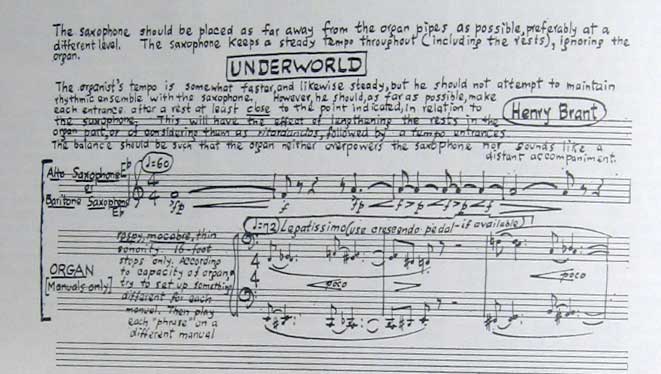 The saxophone should be placed as far away from the organ pipes as possible, preferably at a
different level. The saxophone keeps a steady tempo throughout (including the rests), ignoring the
organ.
UNDERWORLD
The organist's tempo is somewhat faster, and likewise steady, but he should not attempt to maintain
rhythmic ensemble with the saxophone. However, he should, as far as possible, make
each entrance after a rest at least close to the point indicated, in relation to
the saxophone. This will have the effect of lengthening the rests in the
organ part, or of considering them as ritardandos, followed by a tempo entrances.
Henry Brant
The balance should be such that the organ neither overpowers the saxophone nor sounds like a
distant accompaniment.
Alto Saxophone Eb
or
Baritone Saxophone
Eb
♩=60
4
4
♩=72 Legatissimo (use crescendo pedal-if available)
raspy, macabre, thin
sonority. 16-foot
stops only. According
to capacity of organ,
try to set up something
different for each
manual. Then play
each "phrase" on a
different manual
ORGAN
[Manuals only]
4
4
poco
poco